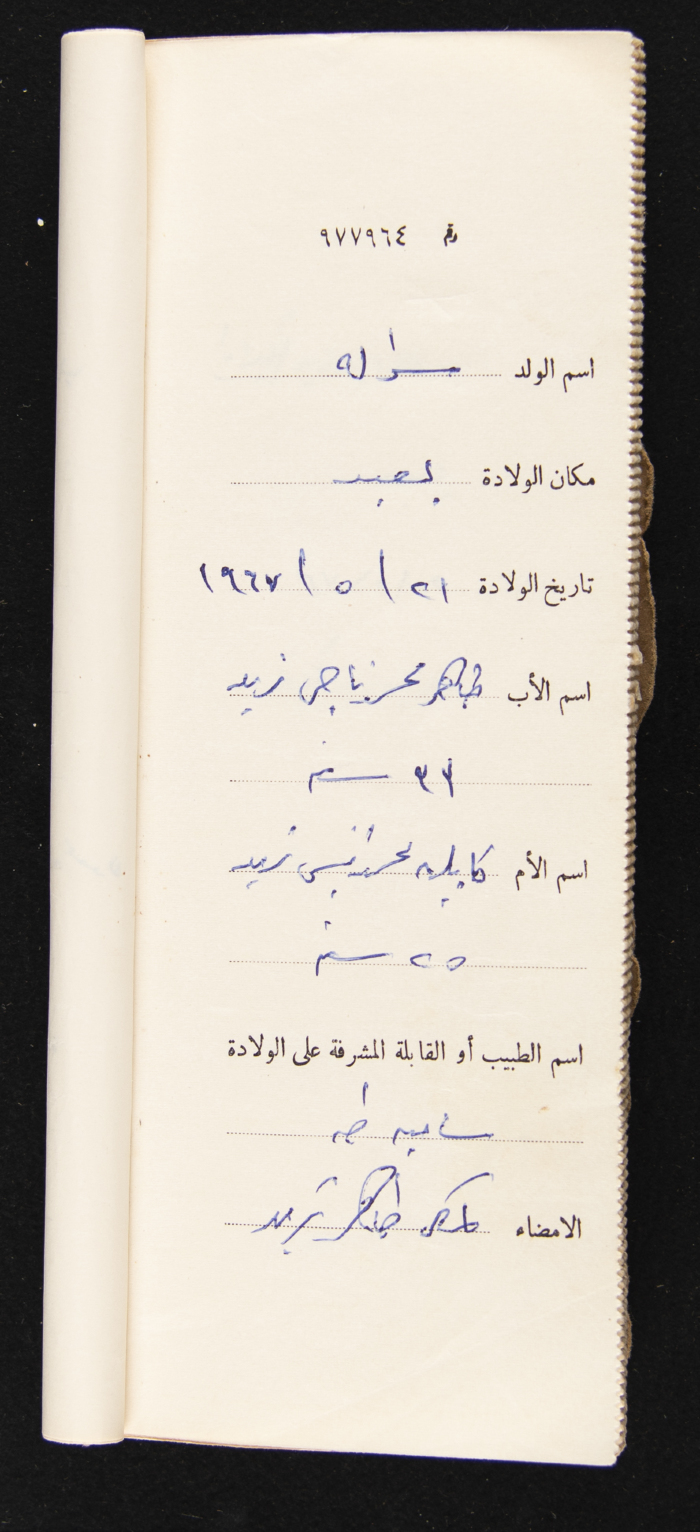 رقم ٩٧٧٩٦٤
اسم الولد
مكان الولادة يعبد
تاريخ الولادة ٢١ / ٥ / ١٩٦٧
اسم الأب ظاهر محمد ناجي زيد
٣٣ سنة
اسم الأم كامله محمد زيد
٢٥ سنة
اسم الطبيب أو القابلة المشرفة على الولادة
ساميه طه
الامضاء ظاهر زيد